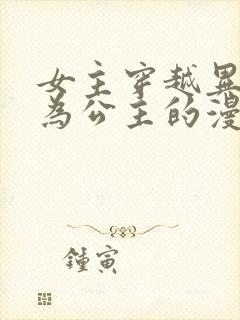 女主穿越異
為公主的漫
鍾寅